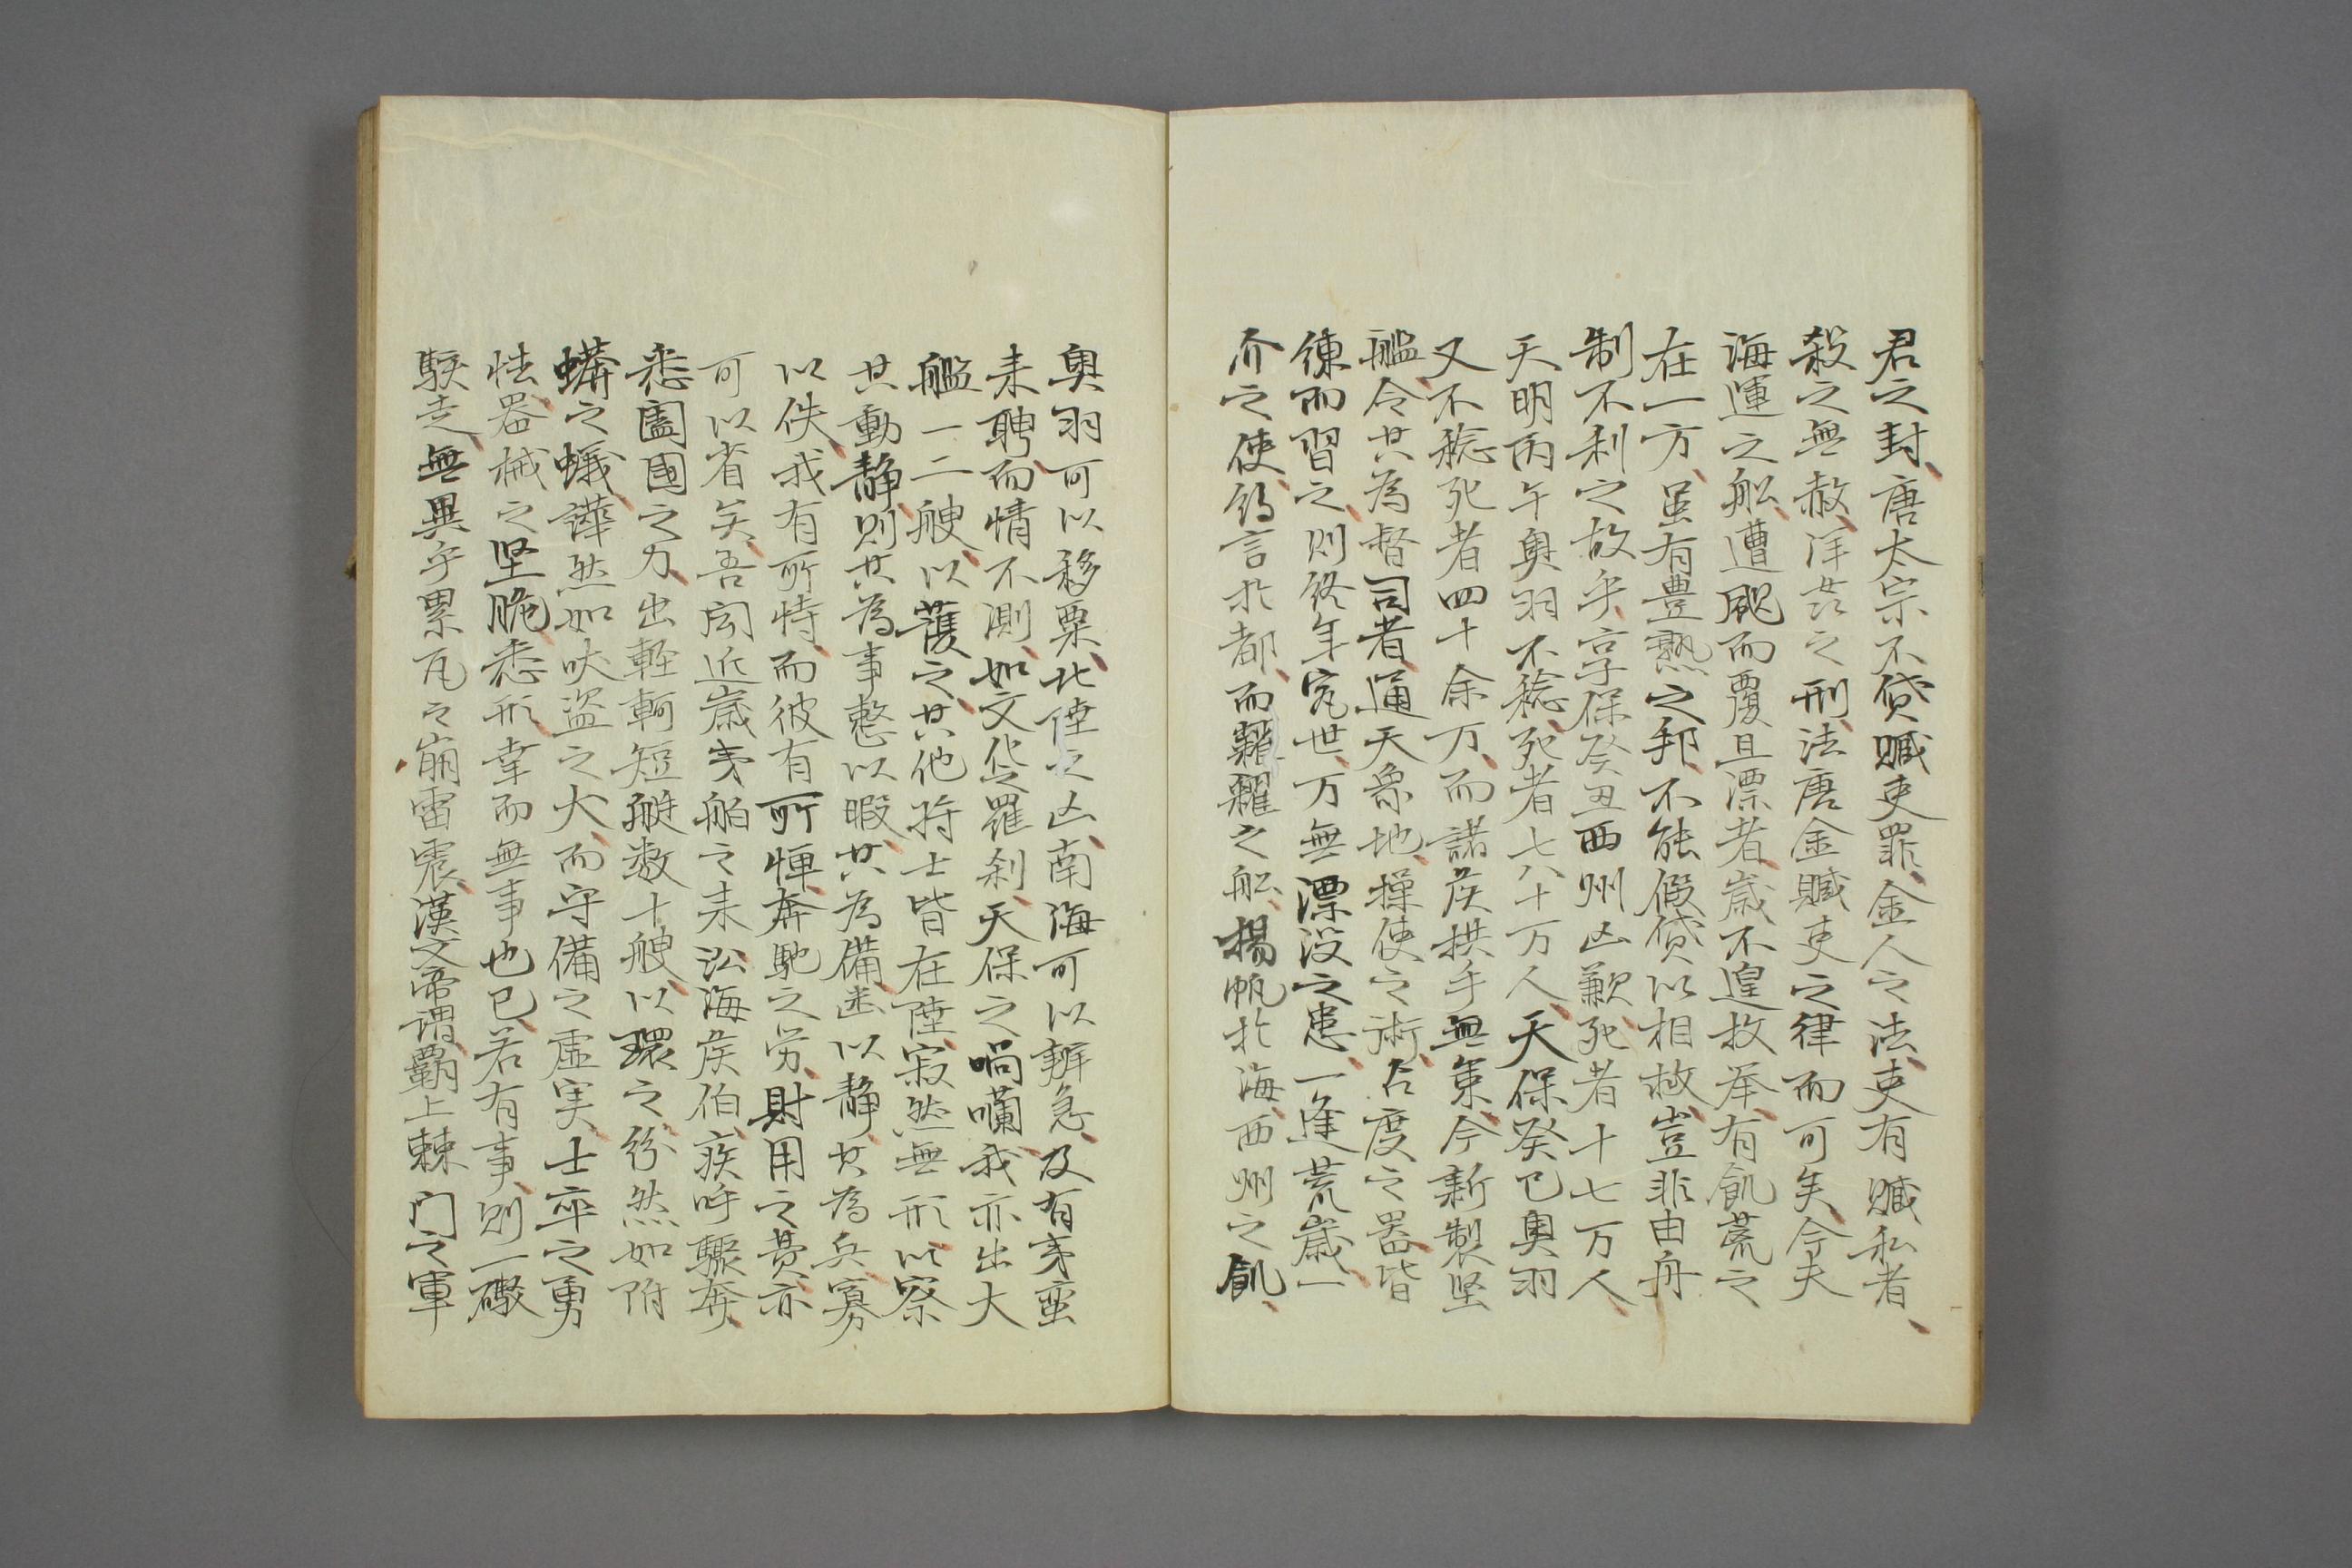 君之封、唐太宗不貸贓吏罪、金人之法、吏有贓私者、
殺之無赦、洋蛮之刑法、唐金贓吏之律而可矣、今夫
海運之舩、遭颶而覆且漂者、歳不遑枚挙、有飢荒之
在一方、虽有豊熟之邦、不能假貸以相救、豈非由舟
制不利之故乎、享保癸丑西州凶歉、死者十七万人、
天明丙午奥羽不稔、死者七八十万人、天保癸巳奥羽
又不稔死者四十余万、而諸侯拱手無策、今新製堅
艦、令其為督司者、通天象地、操使之術、石度之器、皆
練而習之、則終年窮世、万無漂没之患、一逢荒歳、一
介之使、約言於都、而糶糴之舩、揚帆北海、西州之飢、
奥羽可以移粟、北陸之凶、南海可以辨急、及有夷蛮
来聘、而情不測、如文化羅刹、天保之喎囒、我亦出大
艦一二艘、以護之、其他将士皆在陸、寂然無形、以察
其動静、則其為事整以暇、其為備密以静、其為兵寡
以佚、我有所恃、而彼有所憚、奔馳之労、財用之費、亦
可以省矣、吾聞近歳夷舶之来、沿海侯伯、疾呼驟奔、
悉闔国之力、出軽軻短艇数十艘、以環之、紛然如附
蠭之蟻、譁然如吠盗之犬、而守備之虚実、士卒之勇
怯、器械之堅脆、悉形、幸而無事也已、若有事、則一礮
駭走、無異乎累瓦之崩雷震、漢文帝謂覇上棘门之軍